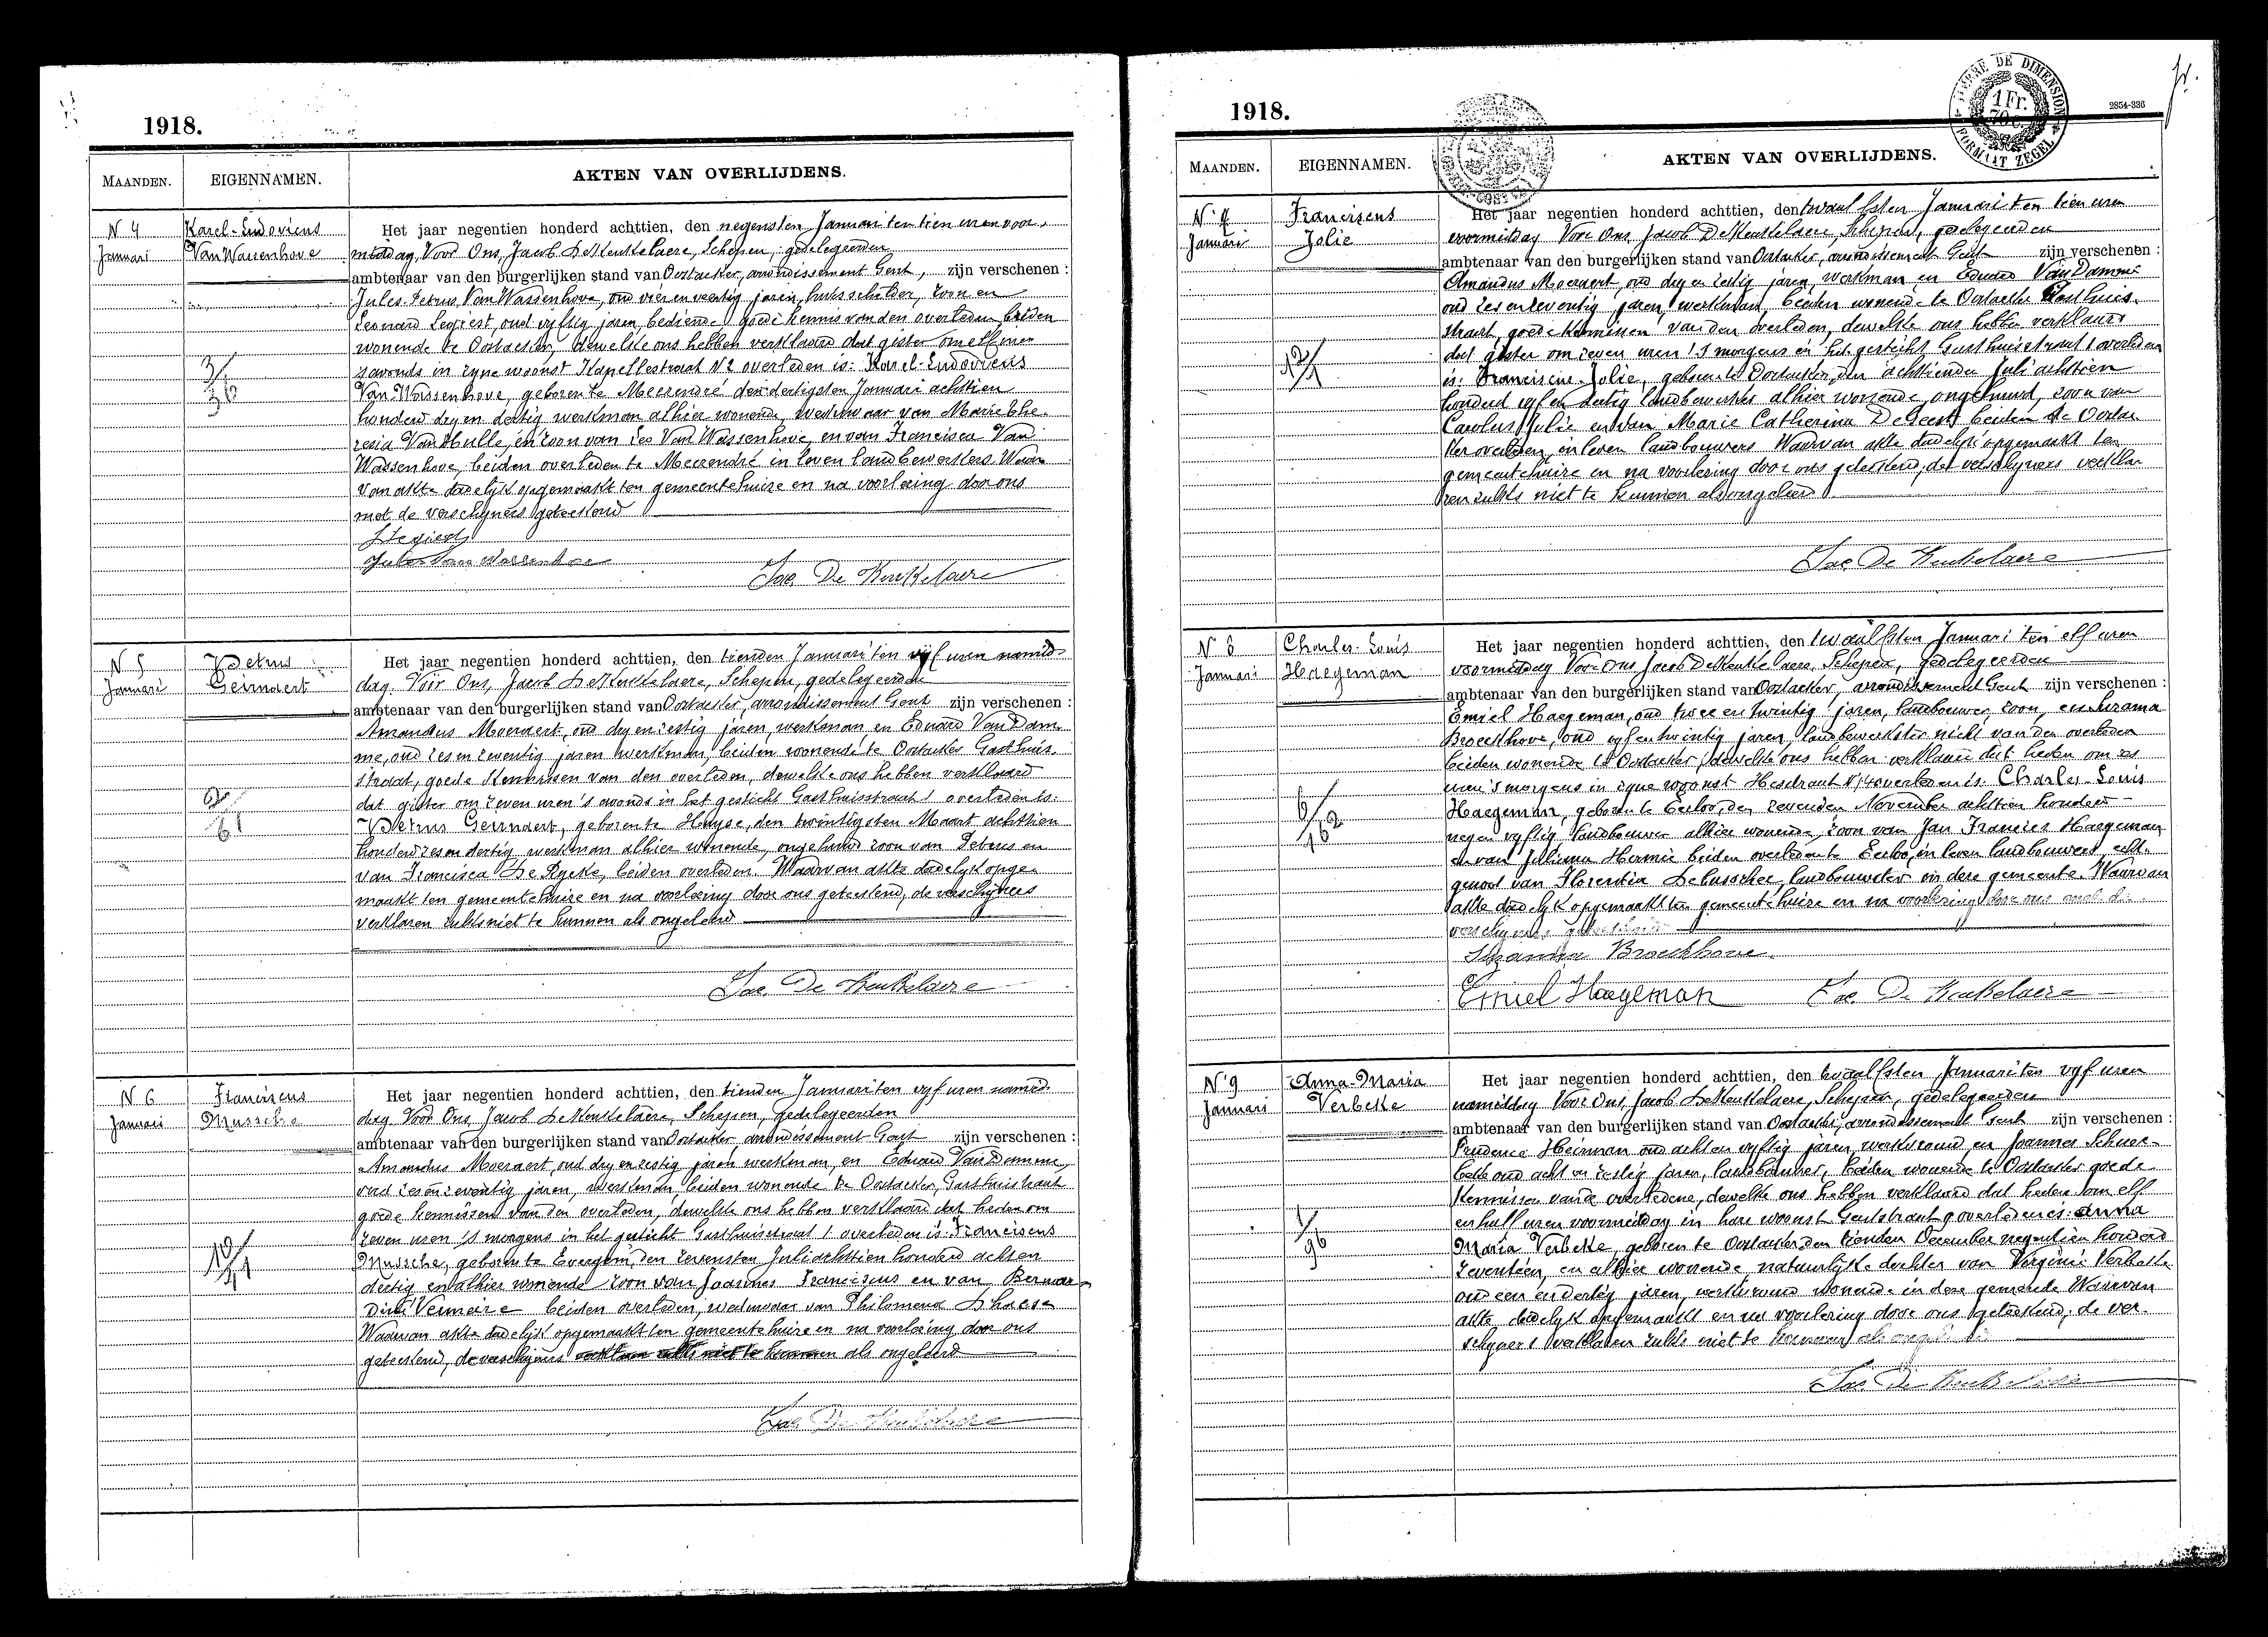 1918.
MAANDEN.
EIGENNAMEN.
AKTEN VAN OVERLIJDENS.
N 4
Januari
Karel-Ludovicus
Van Wassenhove
Het jaar negentien honderd achttien, den negensten Januari ten tien uren voor-
middag, Voor Ons, Jacob De Keukelaere, Schepen, gedelegeerden
ambtenaar van den burgerlijken stand van Oostacker, arrondissement Gent, zijn verschenen :
Jules-Petrus Van Wassenhove, oud vier en veertig jaren, huisschilder, zoon en
Leonard Segiest, oud vijftig jaren, bediende goede kennis van den overleden beiden
wonende te Oostacker, dewelke ons hebben verklaard dat gister om elf uren
s'avonds in zyne woonst Kapellestraat N 2 overleden is: Karel-Ludovicus
Van Wassenhove, geboren te Meerendré den dertigsten Januari achttien
honderd dry en dertig werkman alhier wonende, weduwaar van Marie The-
resia Van Hulle, en zoon van Leo Van Wassenhove, en van Francisca Van
Wassenhove, beiden overleden te Meerendré in leven landbewerkers. Waar-
van akte dadelyk opgemaakt ten gemeentehuize en na voorlezing door ons
met de verschyners geteekend
Jules Van Wassenhove
Jac. De Keukelaere
N 5
Januari
Petrus
Geirnaert
Het jaar negentien honderd achttien, den tienden Januari ten vijf uren namid-
dag. Voor Ons, Jacob De Keukelaere, Schepen, gedelegeerden
ambtenaar van den burgerlijken stand van Oostacker, arrondissement Gent zijn verschenen :
Amandus Moeraert, oud dry en zestig jaren, werkman, en Eduard Van Dam-
me, oud zes en zeventig jaren werkman, beiden wonende te Oostacker Gasthuis-
straat, goede kennissen van den overleden, dewelke ons hebben verklaard
dat gister om zeven uren 's avonds in het gesticht Gasthuisstraat 1 overleden is:
Petrus Geirnaert, geboren te Huyse, den twintigsten Maart achttien
honderd zes en dertig werkman alhier wonende, ongehuwd zoon van Petrus en
van Francisca De Rycke, beiden overleden. Waarvan akte dadelyk opge-
maakt ten gemeentehuize en na voorlezing door ons geteekend, de verschyners
verklaren zulks niet te kunnen als ongeleerd
Jac. De Keukelaere
N 6
Januari
Franciscus
Mussche
Het jaar negentien honderd achttien, den tienden Januari ten vyf uren namid-
dag Voor Ons, Jacob De Keukelaere, Schepen, gedelegeerden
ambtenaar van den burgerlijken stand van Oostacker, arrondissement Gent zijn verschenen :
Amandus Moeraert, oud dry en zestig jaren werkman, en Eduard Van Damme,
oud zes en zeventig jaren, werkman beiden wonende te Oostacker, Gasthuisstraat
goede kennissen van den overleden, dewelke ons hebben verklaard dat heden om
zeven uren 's morgens in het gesticht Gasthuisstraat 1 overleden is: Franciscus
Mussche, geboren te Evergem, den zevensten Juli achttien honderd acht en
dertig en alhier wonende zoon van Joannes Franciscus en van Bernar-
dine Vermeire beiden overleden, weduwaar van Philomena Dhaese
Waarvan akte dadelyk opgemaakt ten gemeentehuize en na voorlezing door ons
geteekend, de verschyners verklaren zulks niet te kunnen als ongeleerd
Jac. De Keukelaere
1918.
MATIERE DE DIMENSION
1 Fr.
FORMAAT ZEGEL
2854-336
MAANDEN.
EIGENNAMEN.
AKTEN VAN OVERLIJDENS.
N 7
Januari
Franciscus
Jolie
Het jaar negentien honderd achttien, den twaalfsten Januari ten tien uren
voormiddag Voor Ons, Jacob De Keukelaere, Schepen, gedelegeerden
ambtenaar van den burgerlijken stand van Oostacker, arrondissement Gent zijn verschenen :
Amandus Moeraert, oud dry en zestig jaren, werkman en Eduard Van Damme
oud zes en zeventig jaren, werkman, beiden wonende te Oostacker Gasthuis-
straat, goede kennissen van den overleden, dewelke ons hebben verklaard
dat gister om zeven uren 's morgens in het gesticht Gasthuisstraat 1 overleden
is: Franciscus Jolie, geboren te Oostacker, den achttienden Juli achttien
honderd vyf en dertig landbewerker alhier wonende, ongehuwd, zoon van
Carolus Jolie en van Marie Catherina De Geest beiden te Oostac-
ker overleden, in leven landbouwers Waarvan akte dadelyk opgemaakt ten
gemeentehuize en na voorlezing door ons geteekend, de verschyners verkla-
ren zulks niet te kunnen als ongeleerd
Jac. De Keukelaere
N 8
Januari
Charles-Louis
Haegeman
Het jaar negentien honderd achttien, den twaalfsten Januari ten elf uren
voormiddag Voor Ons Jacob De Keukelaere, Schepen, gedelegeerden
ambtenaar van den burgerlijken stand van Oostacker, arrondissement Gent zijn verschenen :
Emiel Haegeman, oud twee en twintig jaren, landbouwer, zoon, en
Broeckhove, oud vyf en twintig jaren, landbewerkster nicht van den overleden
beiden wonende te Oostacker, dewelke ons hebben verklaard dat heden om zes
uren 's morgens in zyne woonst overleden is: Charles-Louis
Haegeman, geboren te Eecloo, den zevenden November achttien honderd
negen vyftig landbouwer alhier wonende, zoon van Jan Francies Haegeman
en van Juliana Hermie beiden overleden te Eecloo, in leven landbouwers, echt-
genoot van Florentia Debusscher, landbouwster in deze gemeente. Waarvan
akte dadelyk opgemaakt ten gemeentehuize en na voorlezing door ons met de
verschyners geteekend
Broeckhove
Emiel Haegeman
Jac. De Keukelaere
N 9
Januari
Anna-Maria
Verbeke
Het jaar negentien honderd achttien, den twaalfsten Januari ten vyf uren
namiddag Voor Ons, Jacob De Keukelaere, Schepen, gedelegeerden
ambtenaar van den burgerlijken stand van Oostacker, arrondissement Gent zijn verschenen :
Prudence Heirman oud acht en vyftig jaren, werkvrouw, en Joannes
oud acht en zestig jaren, landbouwer, beiden wonende te Oostacker goede
kennissen van de overledene, dewelke ons hebben verklaard dat heden om elf
en half uren voormiddag in hare woonst Gentstraat 9 overleden is: Anna
Maria Verbeke, geboren te Oostacker den tienden December negentien honderd
zeventien, en alhier wonende natuurlijke dochter van Virginie Verbeke
oud een en dertig jaren, werkvrouw wonende in deze gemeente Waarvan
akte dadelyk opgemaakt en na voorlezing door ons geteekend, de ver-
schyners verklaren zulks niet te kunnen als ongeleerd
Jac. De Keukelaere